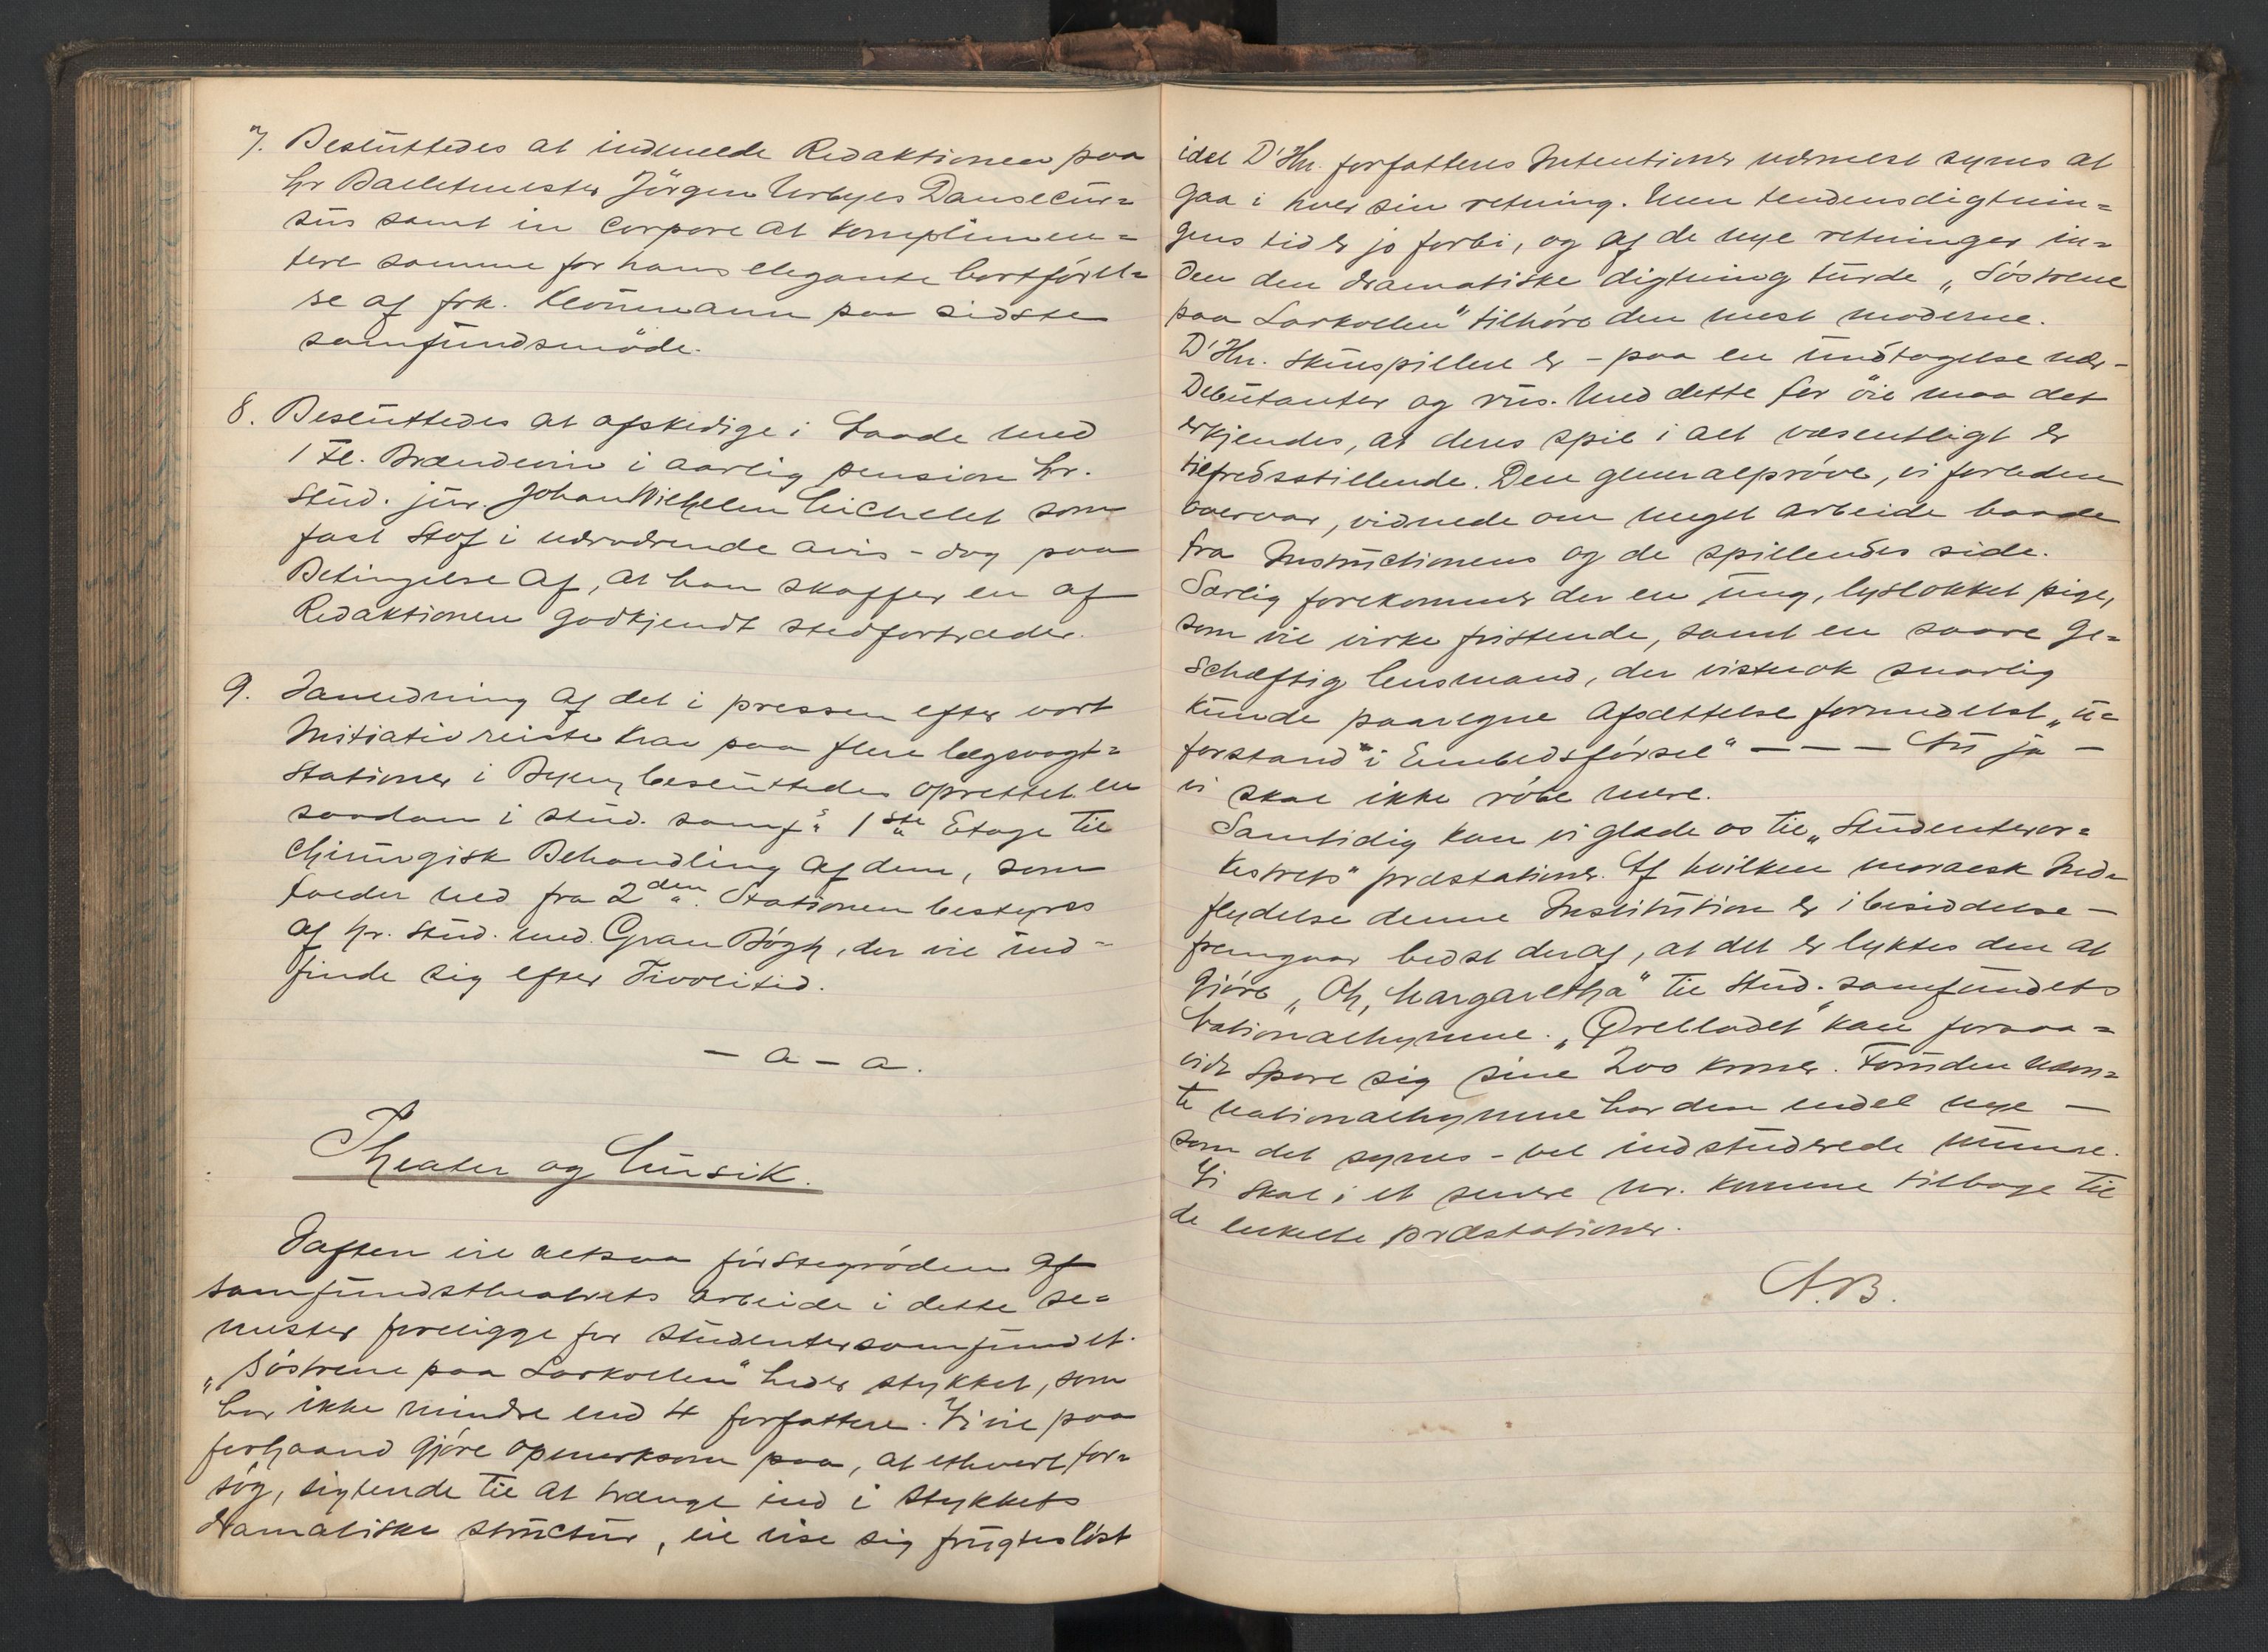 7. Besluttedes at indmelde Redaktionen paa
hr Balletmester Jörgen Urbyes Dansecur=
sus samt in corpore at komplimen=
tere samme for hans elegante bortförel=
se af frk. Klönemann paa sidste
samfundsmöde.
8. Besluttedes at afskedige i Naade med
1 Fl. Brændevin i aarlig pension hr.
stud. jur. Johan Wilhelm Michelet som
fast Stof i nærværende avis - dog paa
Betingelse af, at han skaffer en af
Redaktionen godkjendt stedfortræder.
9. I anledning af det i pressen efter vort
Initiativ reiste Krav paa flere lægevagt=
stationer i Byen, besluttedes oprettet en
saadan i stud. samf's 1ste Etage til
chirurgisk Behandling af dem, som
falder ned fra 2den. Stationen bestyres
af hr. stud. med. Gran Bögh, der vil ind=
finde sig efter Tivolitid.
- a - a.
Theater og Musik.
Iaften vil altsaa förstegröden af
samfundstheatrets arbeide i dette se=
mester foreligge for studentersamfundet.
"Söstrene paa Larkollen" heder stykket, som
har ikke mindre end 4 forfattere. Vi vil paa
forhaand gjöre opmerksom paa, at ethvert for=
søg, sigtende til at trænge ind i stykkets
dramatiske structur, vil vise sig frugteslöst
idet D'Hrr. forfatteres Intentioner nærmest synes at
gaa i hver sin retning. Men tendensdigtnin=
gens tid er jo forbi, og af de nye retninger in=
den den dramatiske digtning turde "Söstrene
paa Larkollen" tilhöre den mest moderne.
D'Hrr. skuespillere er - paa en undtagelse nær -
Debutanter og rus. Med dette for öie maa det
erkjendes, at deres spil i alt væsentligt er
tilfredsstillende. Den generalpröve, vi forleden
overvar, vidnede om meget arbeide baade
fra Instructionens og de spillendes side.
Særlig forekommer der en ung, lyslokket pige,
som vil virke fristende, samt en saare ge=
schæftig lensmand, der vistnok snarlig
kunde paaregne Afsættelse formedelst "u=
forstand i Embedsførsel" - - - Nu ja -
vi skal ikke röbe mere.
Samtidig kan vi glæde os til "Studenteror=
kestrets" præstationer. Af hvilken moralsk Ind=
flydelse denne Institution er i besiddelse -
fremgaar bedst deraf, at det er lyktes den at
gjöre "Oh, Margaretha" til stud. samfundets
Nationalhymne. "Ørebladet" kan forsaa=
vidt spare sig sine 200 kroner. Foruden nævn=
te nationalhymne har den endel nye -
som det synes - vel indstuderede numre.
Vi skal i et senere nr. komme tilbage til
de enkelte præstationer.
A.B.